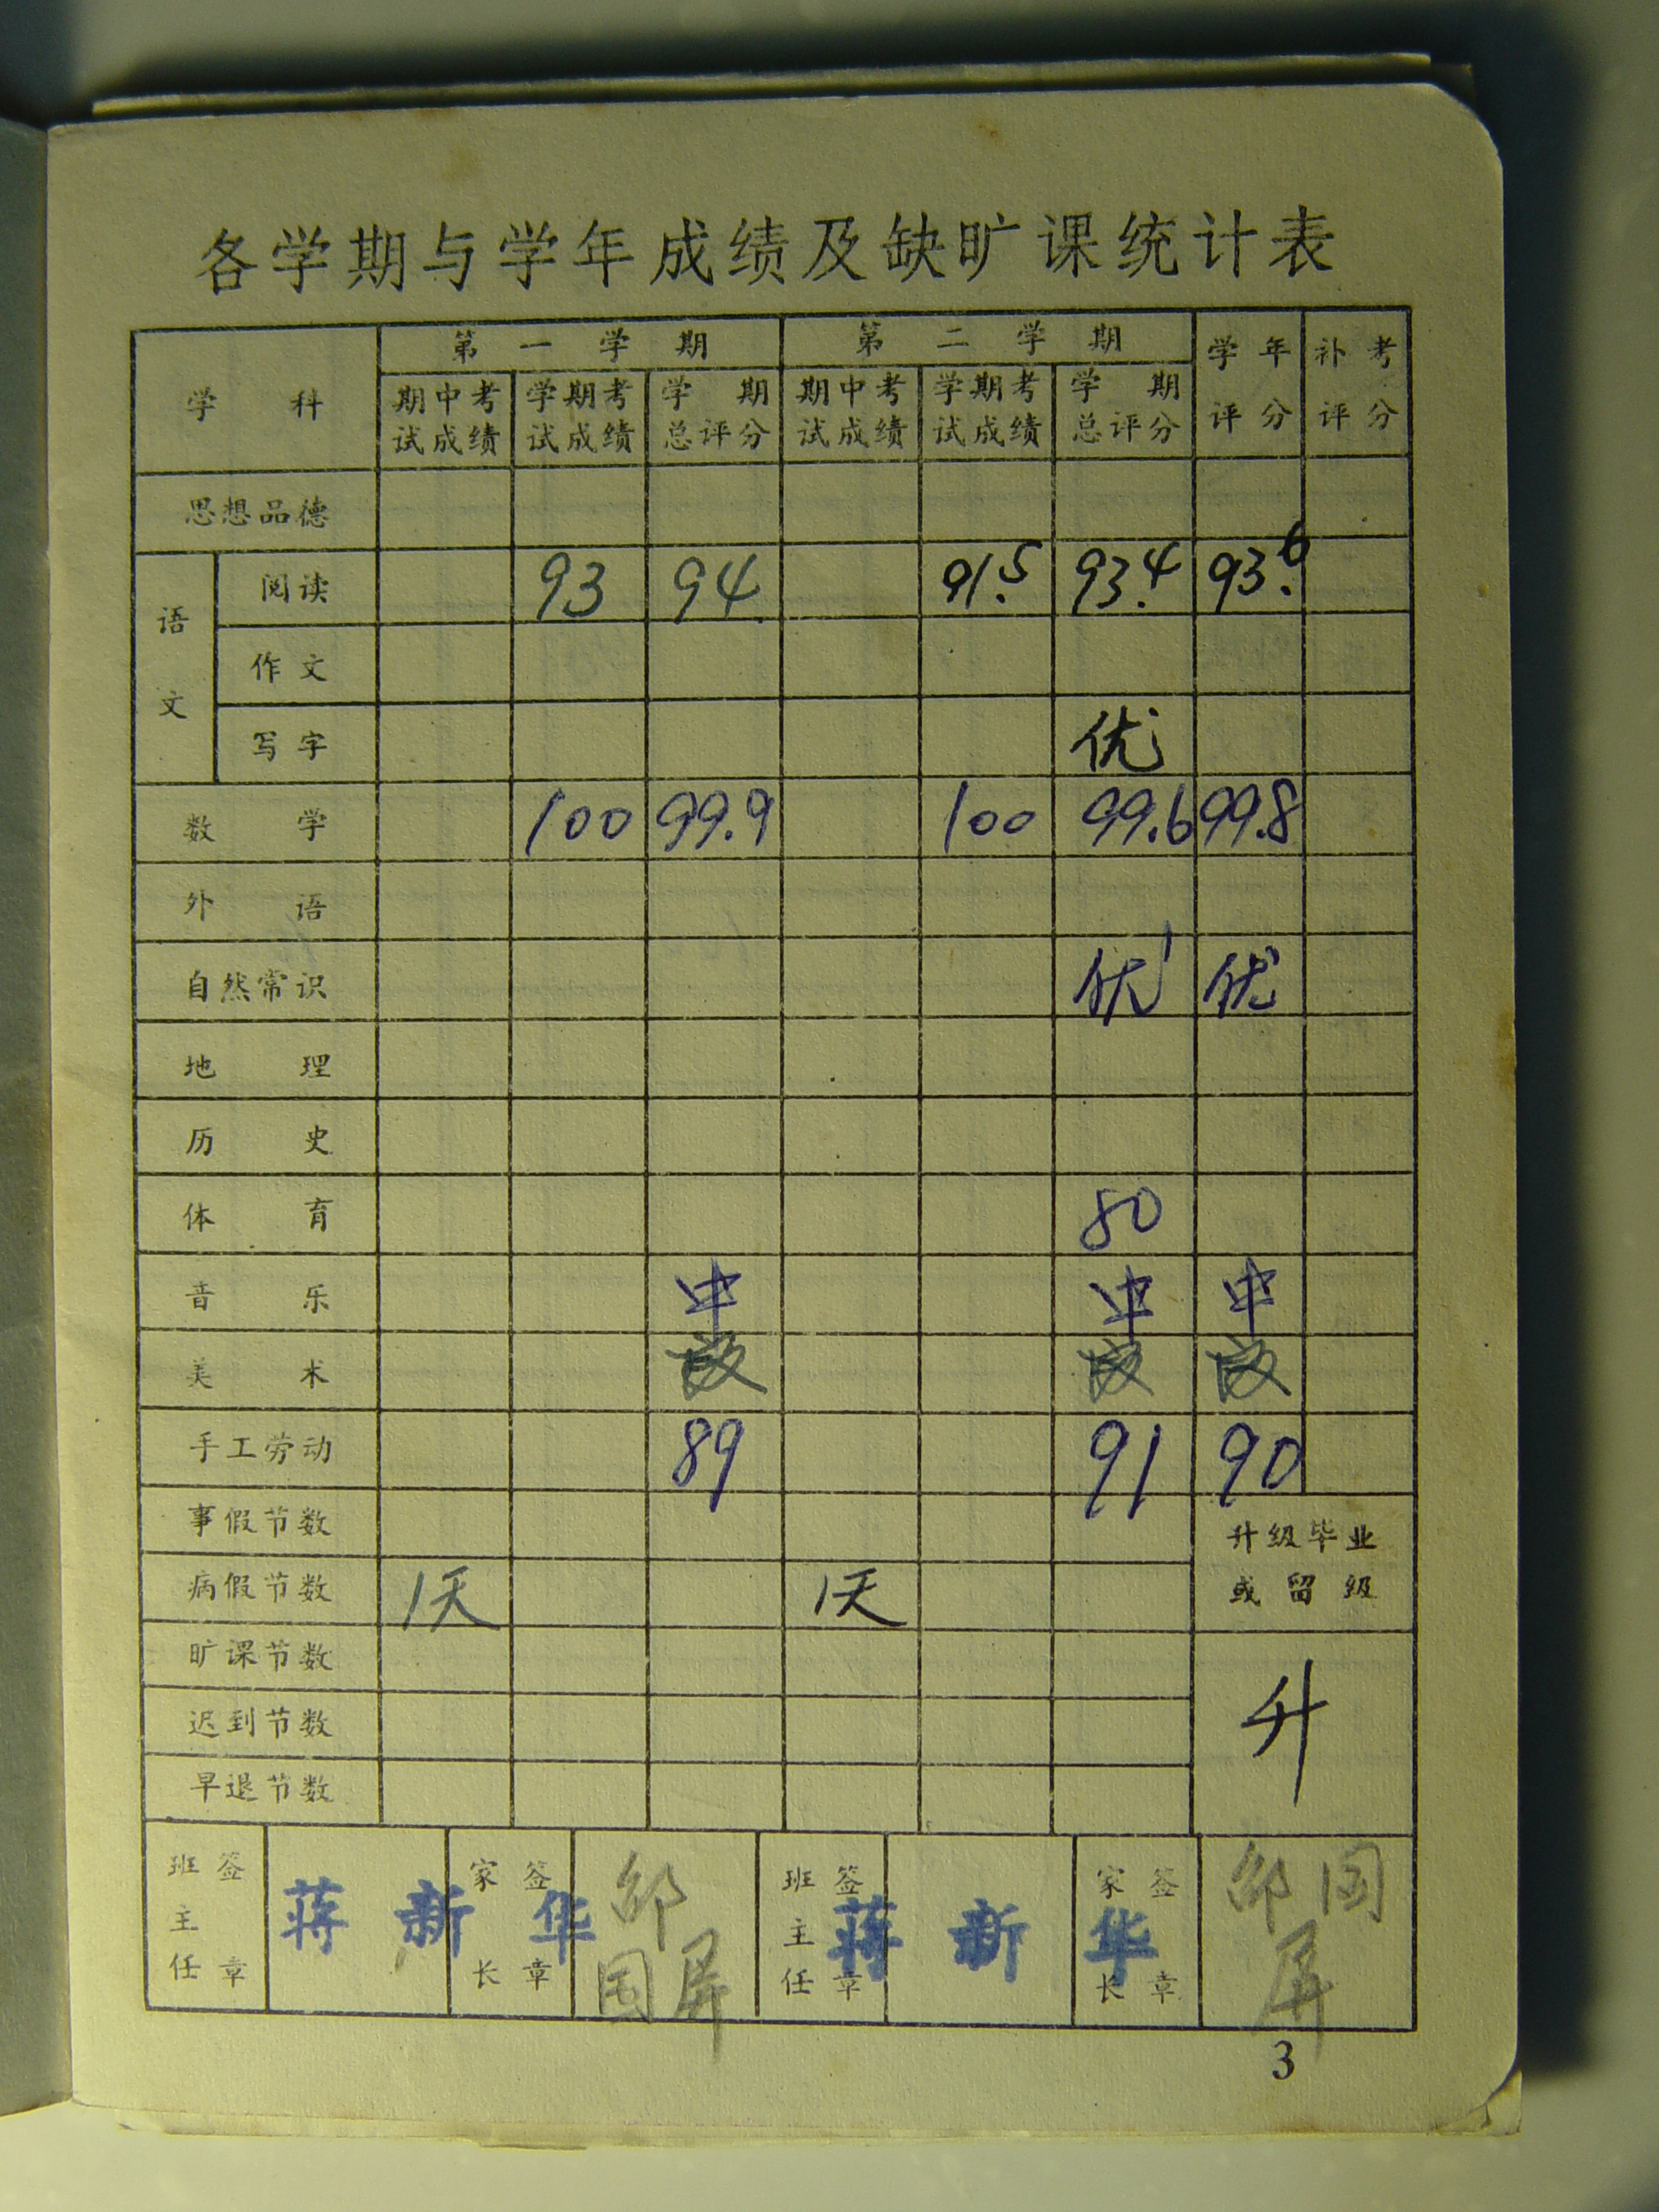 各学期与学年成绩及缺旷课统计表
学科 第一学期 第二学期 学年评分 补考评分
期中考试成绩 学期考试成绩 学期总评分 期中考试成绩 学期考试成绩 学期总评分
思想品德
语文
阅读 93 94 91.5 93.4 93.6
作文
写字 优
数学 100 99.9 100 99.6 99.8
外语
自然常识 优 优
地理
历史
体育 80
音乐 中 中 中
美术
手工劳动 89 91 90
事假节数 升级毕业或留级
病假节数 1天 1天
旷课节数
迟到节数 升
早退节数
班主任签章 蒋新华 家长签章 邵国屏 班主任签章 蒋新华 家长签章 邵国屏
3